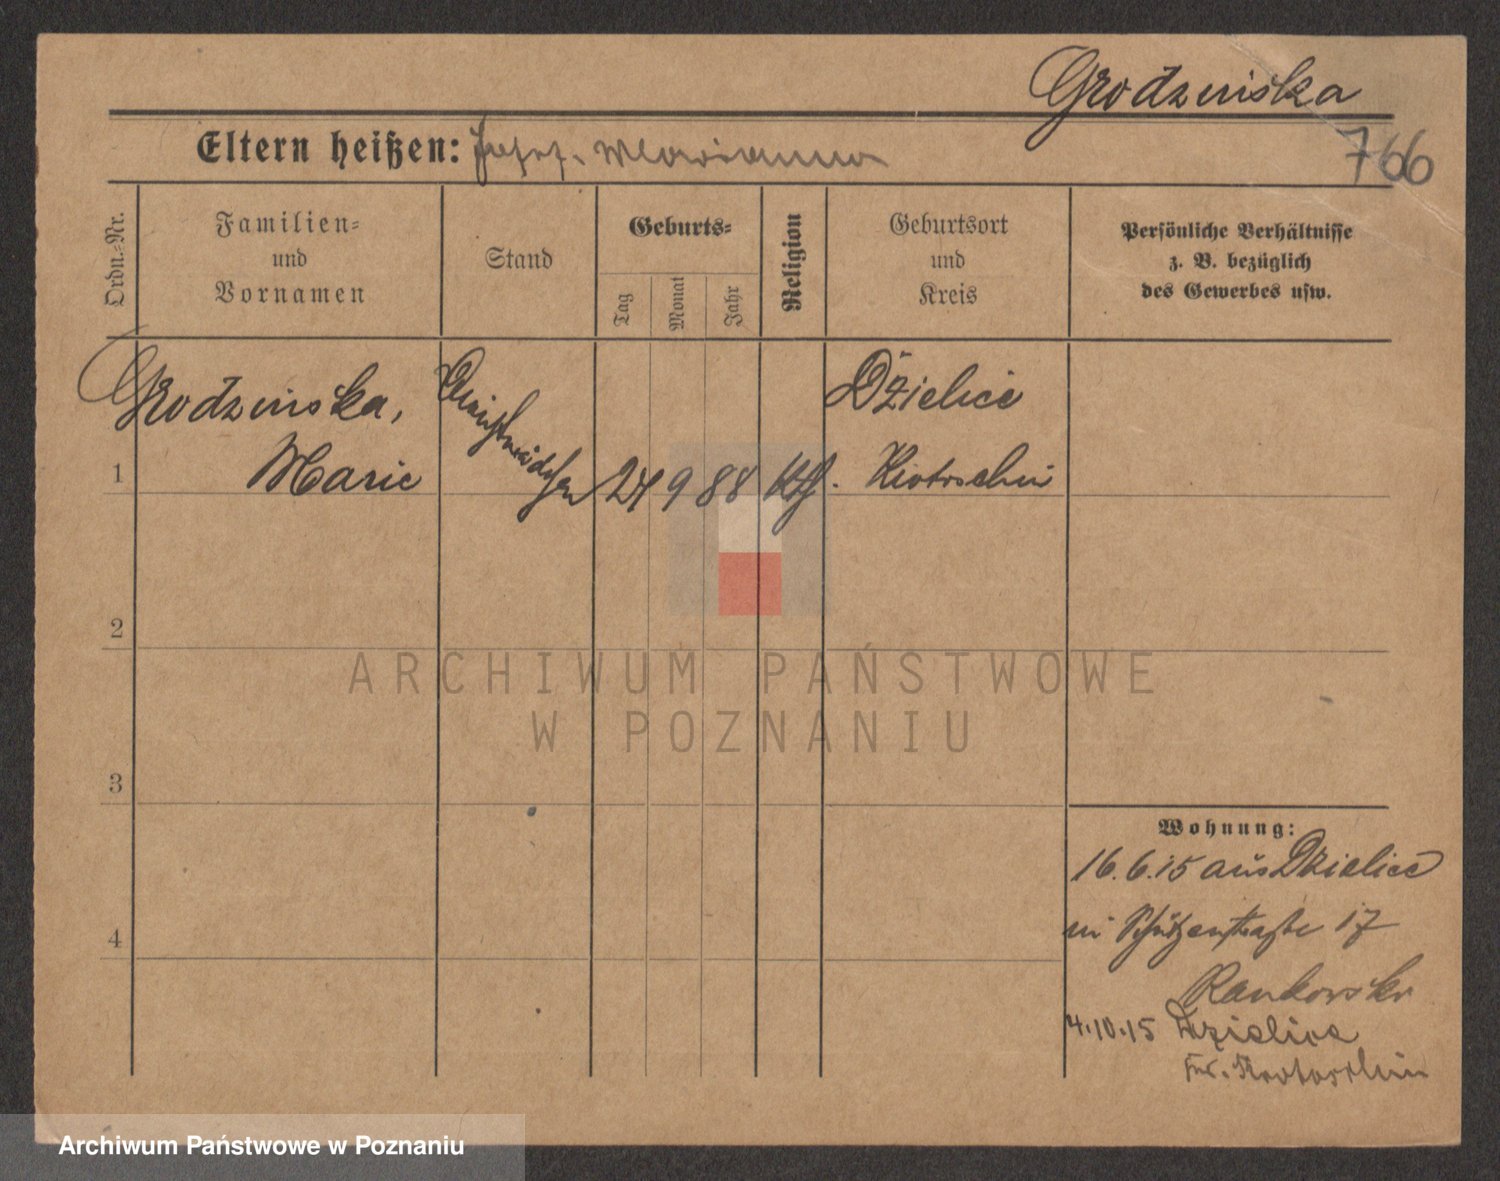 Grodzinska
766
Eltern heißen: Josef. Marianna
Ordn.-Nr.
Familien-
und
Vornamen
Stand
Geburts-
Tag
Monat
Jahr
Religion
Geburtsort
und
Kreis
Persönliche Verhältnisse
z. B. bezüglich
des Gewerbes usw.
Grodzinska,
Dzielice
1 Marie 24 9 88 Kth. Krotoschin
2
3
4
Wohnung:
16.6.15 aus Dzielice
in Schützenstraße 17
4.10.15 Dzielice
Krotoschin
ARCHIWUM PAŃSTWOWE
W POZNANIU
Archiwum Państwowe w Poznaniu